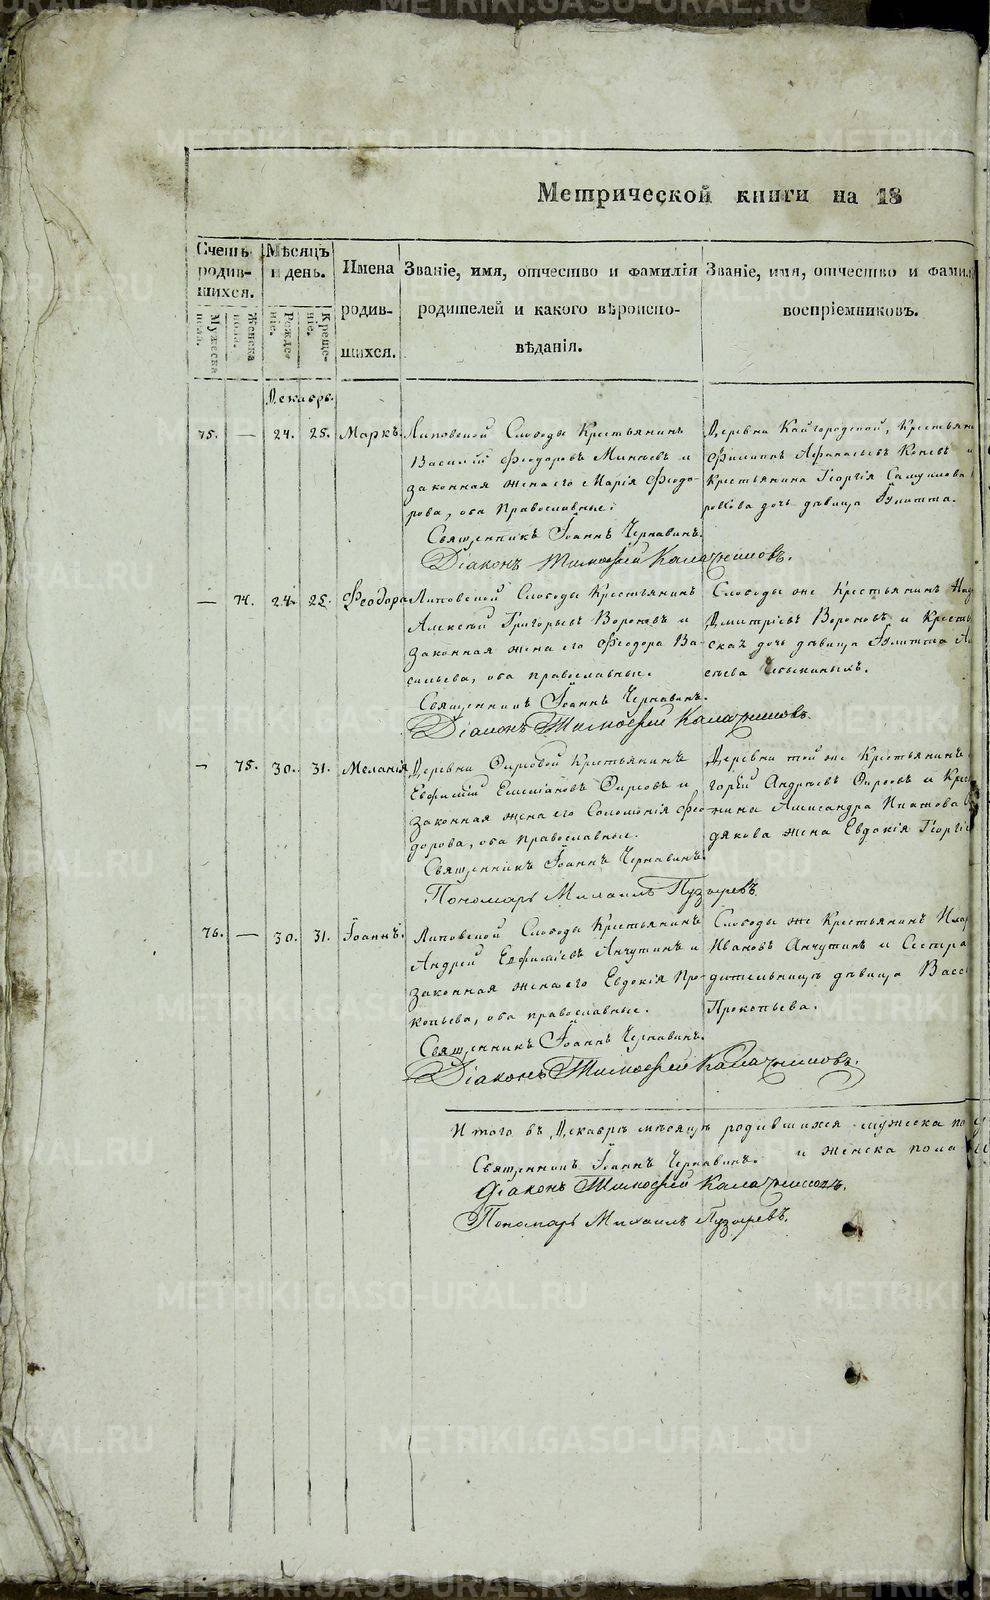 METRIKI.GASO-URAL.RU
Метрической книги на 18
Счетъ родив-шихся.
Мужеска пола.
Женска пола.
Мѣсяцъ и день.
Рожде-нiе.
Креще-нiе.
Имена родив-шихся.
Званiе, имя, отчество и фамилiя
родителей и какого вѣроиспо-
вѣданiя.
Званiе, имя, отчество и фамил
воспрiемниковъ.
Декабрь.
75. — 24. 25. Маркъ.
Липовской Слободы Крестьянинъ
Василiй Феодоровъ Минѣевъ и
законная жена его Марiя Феодо-
рова, оба Православные.
Священникъ Iоаннъ Чернавинъ.
Дiаконъ Тимофей Калачниковъ.
Деревни Кайгородской, Крестьян
Филиппъ Афанасьевъ Коневъ и
Крестьянина Георгiя Самуилова
рокова дочь дѣвица Iулитта.
— 74. 24. 25. Феодора
Липовской Слободы Крестьянинъ
Алексѣй Григорьевъ Вороновъ и
законная жена его Феодора Ва-
сильева, оба православные.
Священникъ Iоаннъ Чернавинъ.
Дiаконъ Тимофей Калачниковъ.
Слободы же Крестьянинъ
Дмитрiевъ Вороновъ и Кресть
ская дочь дѣвица Iулитта А
— 75. 30. 31. Меланiя
Деревни Фирсовой Крестьянинъ
Евфимiй Фирсовъ и
законная жена его Соломонiя Фео
дорова, оба православные.
Священникъ Iоаннъ Чернавинъ.
Пономарь Михаилъ Пузыревъ
Деревни той же Крестьянинъ
горiй Андреевъ Фирсовъ и Крес
нина Александра Игнатова
дякова жена Евдокiя Георгiе
76. — 30. 31. Iоаннъ.
Липовской Слободы Крестьянинъ
Андрей Евфимiевъ Анчутинъ и
законная жена его Евдокiя Про-
копьева, оба православные.
Священникъ Iоаннъ Чернавинъ.
Дiаконъ Тимофей Калачниковъ.
Слободы же Крестьянинъ
Ивановъ Анчутинъ и Сестра
дительницы дѣвица Васс
Прокопьева.
Итого въ Декабрѣ мѣсяцѣ родившихся мужеска по
и женска пола
Священникъ Iоаннъ Чернавинъ.
Дiаконъ Тимофей Калачниковъ.
Пономарь Михаилъ Пузыревъ.